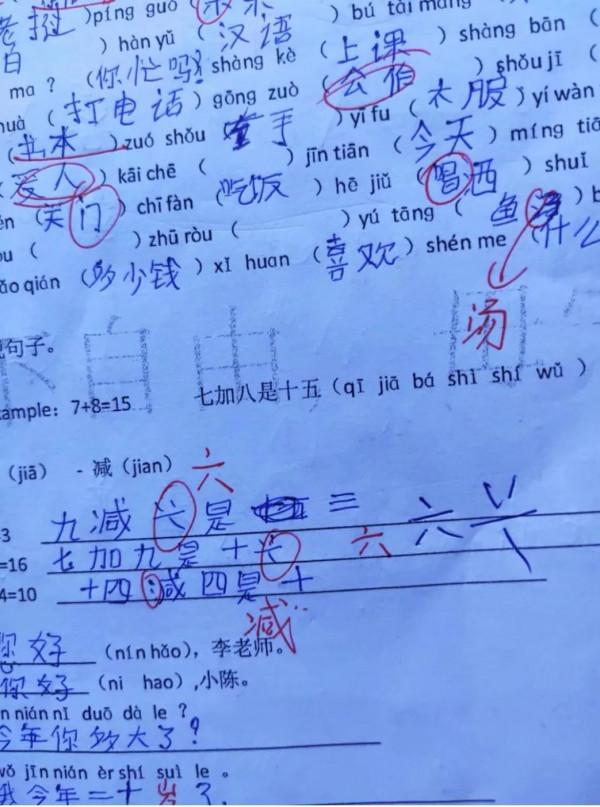 píng guǒ (
) hàn yǔ (汉语) bú tài máng
ma ? (你忙吗) shàng kè (上课) shàng bān (
huà (打电话) gōng zuò ( ) shǒu jī (
(本) zuó shǒu 手) yī fu (衣服) yí wàn
(爱人) kāi chē ( ) jīn tiān (今天) míng tiā
(关门) chī fàn (吃饭) hē jiǔ (喝酒) shuǐ
ou ( ) zhū ròu ( ) yú tāng (鱼
ǎo qián (多少钱) xǐ huan (喜欢) shén me (什么
汤
说句子。
ample: 7+8=15 七加八是十五 (qī jiā bá shì shí wǔ )
(jiā) - 减 (jian) 六
-3 九减 是 三 六
=16 七加九是十 六
4=10 十四减四是十
减
你好 (nín hǎo), 李老师。
你好 (ni hao) ,小陈。
n nián nǐ duō dà le ?
今年你多大了?
wǒ jīn nián èr shí suì le 。
我今年二十岁了.